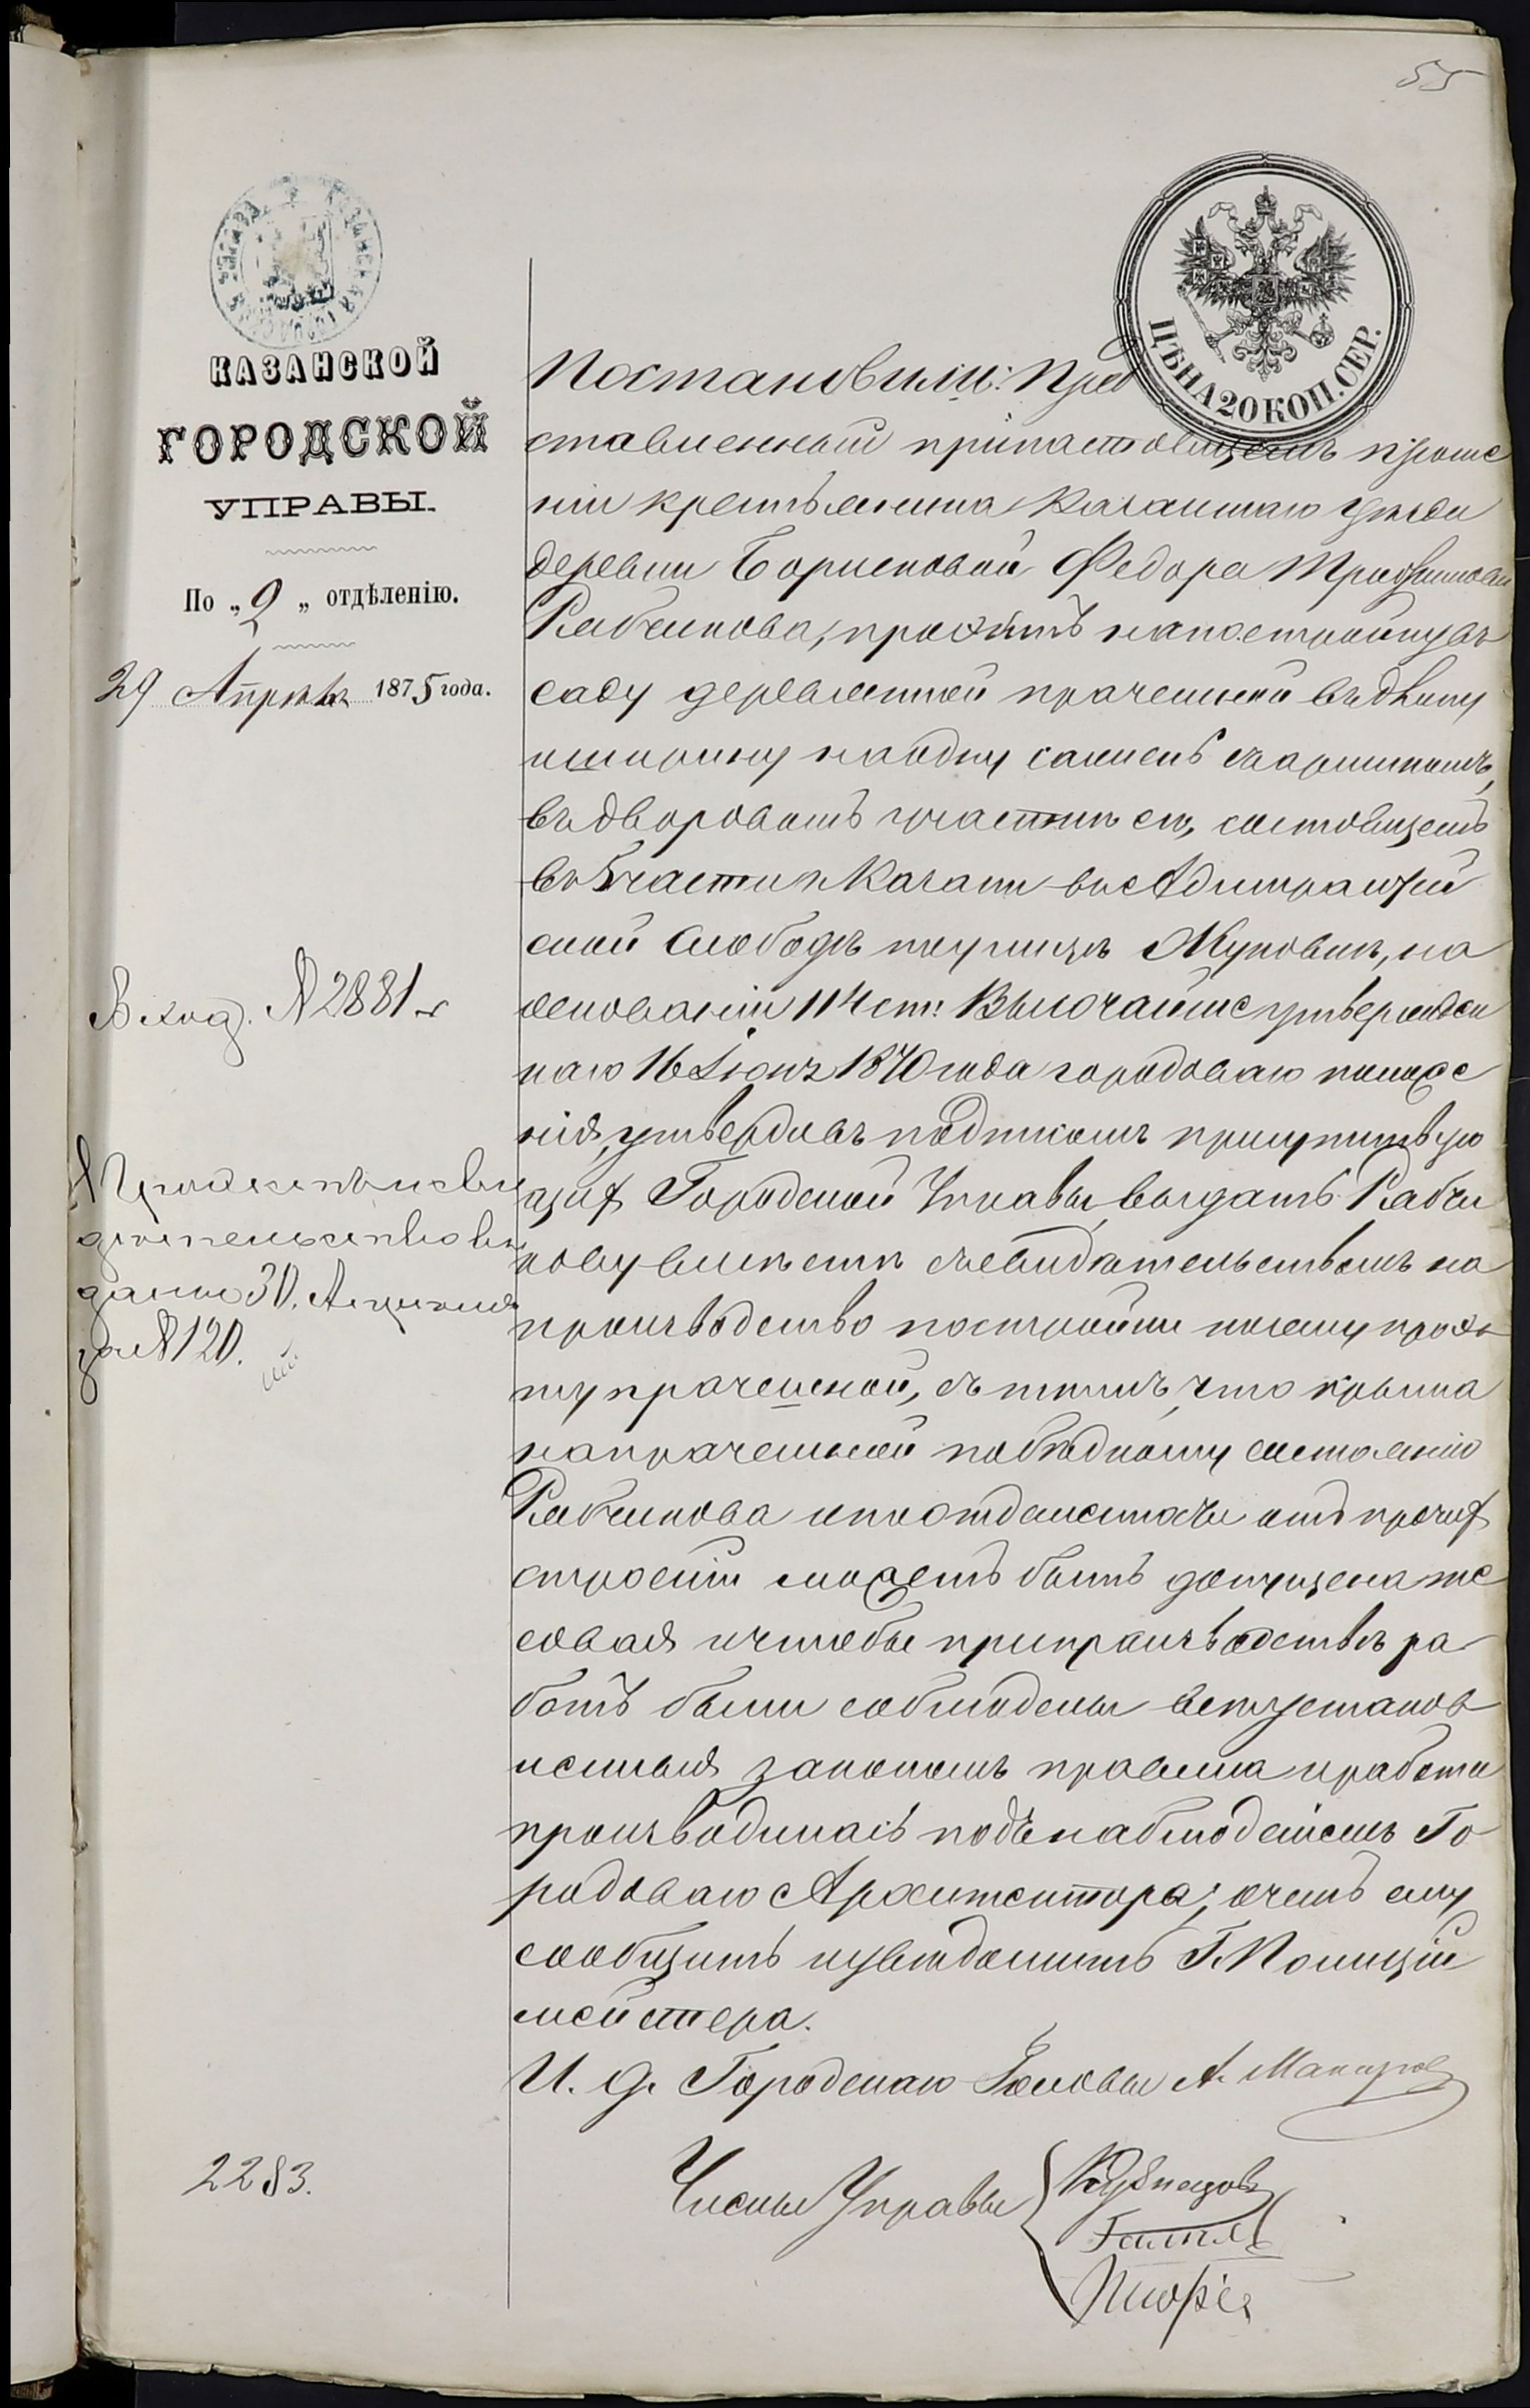 55
КАЗАНСКОЙ
ГОРОДСКОЙ
УПРАВЫ.
По „2„ отдѣленію.
29 Апрѣля 1875 года.
Вход. № 2881
Проэктъ и сви
дѣтельство вы
даны 30 Апрѣля
за № 120.
2283.
ЦѢНА 20 КОП. СЕР.
Постановили: Пред
ставленный при настоящемъ проше
ніи крестьянина Казанскаго уѣзда
деревни Борисковой Федора
Рябчикова, проэктъ на постройку въ
саду деревянной прачешной въ длину
и ширину на одну сажень съ аршиномъ,
въ дворовомъ участкѣ его, состоящемъ
въ 5 части г. Казани въ Адмиралтей
ской Слободѣ по улицѣ Жуковкѣ, на
основаніи 114 ст. Высочайше утвержден
наго 16 Іюня 1870 года городоваго положе
нія, утвердивъ подписомъ присутствую
щихъ Городской Управы, выдать Рябчи
кову вмѣстѣ съ свидѣтельствомъ на
производство постройки по сему проэк
ту прачешной, съ тѣмъ, что крыша
на прачешной по бѣдному состоянію
Рябчикова и по отдаленности отъ прочихъ
строеній можетъ быть допущена те
совая и чтобы при производствѣ ра
ботъ были соблюдены всѣ установ
ленныя закономъ правила и работы
производились подъ наблюденіемъ Го
родоваго Архитектора; о чемъ ему
сообщить и увѣдомить Г. Полиціи
мейстера.
И. д. Городскаго Головы А.
Члены Управы
Кузнецовъ